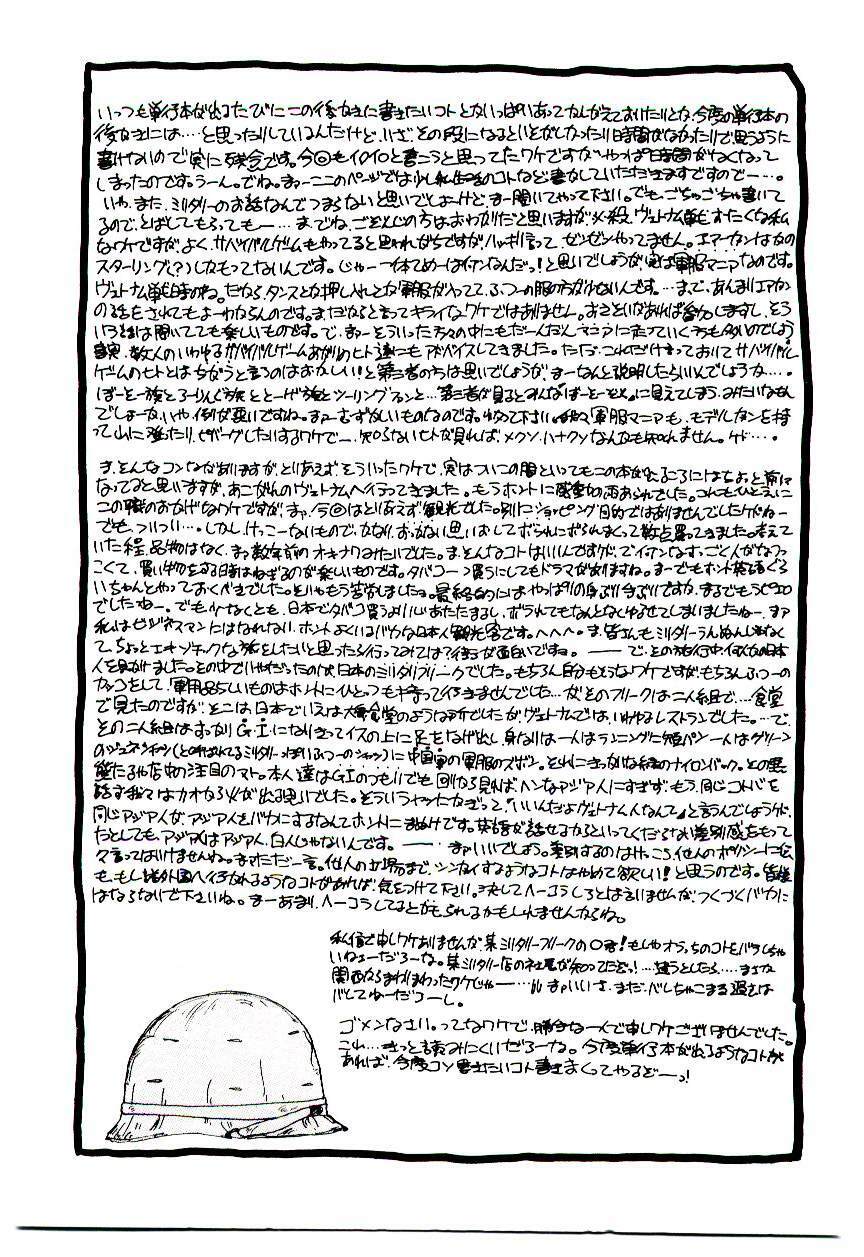 いっつも単行本が出るたびにこの後がきに書きたいコトとかいっぱいあって 今度の単行本の
後がきには…と思ったりしているんだけど、いざ、その段になると 時間がなかったりで思うように
書けないので実に残念です。今回もイロイロと書こうと思ってたワケですがやっぱ時間がなくなって
しまったのです。うーん。でね。まァーここのページでは少し私生活のコトなど書かしていただきますですのでー…。
いや、また、ミリタリーのお話なんでつまらないと思いでしょーけど、まー聞いてやって下さい。でもごちゃごちゃ書いて
るので、とばしてもらってもー…。までね、ごぞんじの方はおわかりだと思いますが 必殺、ヴェトナム戦
なワケですが、よく、サバイバルゲームもやってると思われがちですが、ハッキリ言って、ゼンゼンやってません。エアーガンは
スターリング(?)しかもってないんです。じゃー一体てめーは何なんだっ!と思いでしょうが、実は軍服マニアなのです。
ヴェトナム戦時のね。だから、タンスとか押し入れとか軍服が ふつーの服の方が少ないんです。…まで、あんまりエアガン
の話をされてもよーわからんのです。まただからと言ってキライなワケではありません。おさそいがあれば参加しますし、そう
いう話は聞いてても楽しいものです。で、まァーそういった方々の中にもだーんだんマニアに走っていく方も多いのでしょう
事実、数人のいわゆるサバイバルゲームあがりのヒト達にもアドバイスしてきました。ただ、これだけ言っておいてサバイバル
ゲームのヒトとはちがうと言うのはおかしい!と第三者の方は思いでしょうが、まーなんと説明したらいいんでしょうか…。
ぼーそー族とろーりんぐ族と ツーリング 第三者が見るとみんな"ぼーそー族"に見えてしまう、みたいなもん
でしょーか、いや、例が悪いですね。まァーむずかしいものなのです。 下さい。 軍服マニアも、モデルガンを持
って山に登ったり、ビバークしたりするワケでー、知らないヒトが見れば、メクソ、ハナクソなんかも知れません。ケド…。
ま、そんなコンながありますが、とりあえず、そういったワケで、実はついこの間といってもこの本が出るころにはちょと前に
なってると思いますが、あこがれのヴェトナムへ行ってきました。もうホントに感動の雨あられでした。これもひとえに
この職のおかげなワケですが、まァ、今回はとりあえず観光でした。別にショッピング目的ではありませんでしたケドねー
でも、ついつい…。しかし、けっこーないもので、かなり、おっかない思いおしてボられにボられまくって数点買ってきました。考えて
いた程、品物はなく、まァ数年前のオキナワみたいでした。ま、そんなコトはいいんですが、 すっごく人がなつっ
こくて、買い物をする時はねぎるのが楽しいものです。タバコ一つ買うにしてもドラマがありますね。まーでもホント英語ぐら
いちゃんとやっておくべきでした。 もう苦労しました。最終的にはやっぱりの身ぶり手ぶりですが、まるでもうピエロ
でしたねー。でも少なくとも、日本でタバコ買うよりいいあたたまるし、ボラれてもなんとなくゆるせてしまいましたねー、まァ
私はビジネスマンにはなれない、ホントよくいるバカな日本人観光客です。ヘヘヘ。ま、皆さんもミリタリーうんぬんじゃなく
て、ちょっとエキゾチックな旅をしたいと思ったら行ってみては? 面白いですね。 ―― で、その旅行中何人かの日本
人を見かけました。その中でいやだったのが、日本のミリタリフリークでした。もちろん自分もそうなワケですがもちろんふつーの
カッコをして「軍用品らしいものはホントにひとつも持って行きませんでした…がそのフリークは二人組で…食堂
で見たのですが、そこは日本でいえば大衆食堂のような所でしたが、ヴェトナムでは、いわゆるレストランでした。…で、
その二人組はすっかりG.I.になりきってイスの上に足をなげ出し、身なりは一人はランニングに短パン一人はグリーン
の (と呼ばれてるミリタリーっぽいふつーのシャツ)に中国軍の軍服のズボン。それに 緑のナイロンバック。その異
態たるや店中の注目のマト。本人達はG.I.のつもりでも回りから見ればヘンなアジア人にすぎず、もう、同じコトバを
話す我々はカオから火が出る思いでした。そういうヤツにかぎって「いいんだよヴェトナム人なんて」と言うんでしょうケド、
同じアジア人が、アジア人をバカにするなんてホントにまぬけです。英語が話せるからといってくだらない差別感をもって
たとしても、アジア人はアジア人、白人じゃないんです。 ―― まァいいでしょう。差別するのはけっこう、他人のポリシーに
言ってはいけませんね。まァただ一言。他人の立場まで、シンガイするようなコトはやめて欲しい!と思うのです。皆様
も、もし、外国へ行かれるようなコトがあれば、気をつけて下さい。決してヘーコラしろとは言いませんが、つくづくバカに
はならないで下さいね。まーあまり、ヘーコラしてるとかもられるかもしれませんからね。
私信で申しワケありませんが、某ミリタリーフリークの〇君!もしやオラっちのコトをバラしちゃ
いねェーだろーな。某ミリタリー店の社長が知ってたぞっ!…違うとしたら……まさか
関西からまわりまわったワケじゃー… まァいいさ、まだ、バレちゃこまる過去は
バレてねーだろーし。
ゴメンなさい。ってなワケで、勝手な一人で申しワケございませんでした。
これ…きっと読みにくいだろーな。今度単行本が出るようなコトが
あれば、今度コソ書きたいコト書きまくってやるぞーっ!